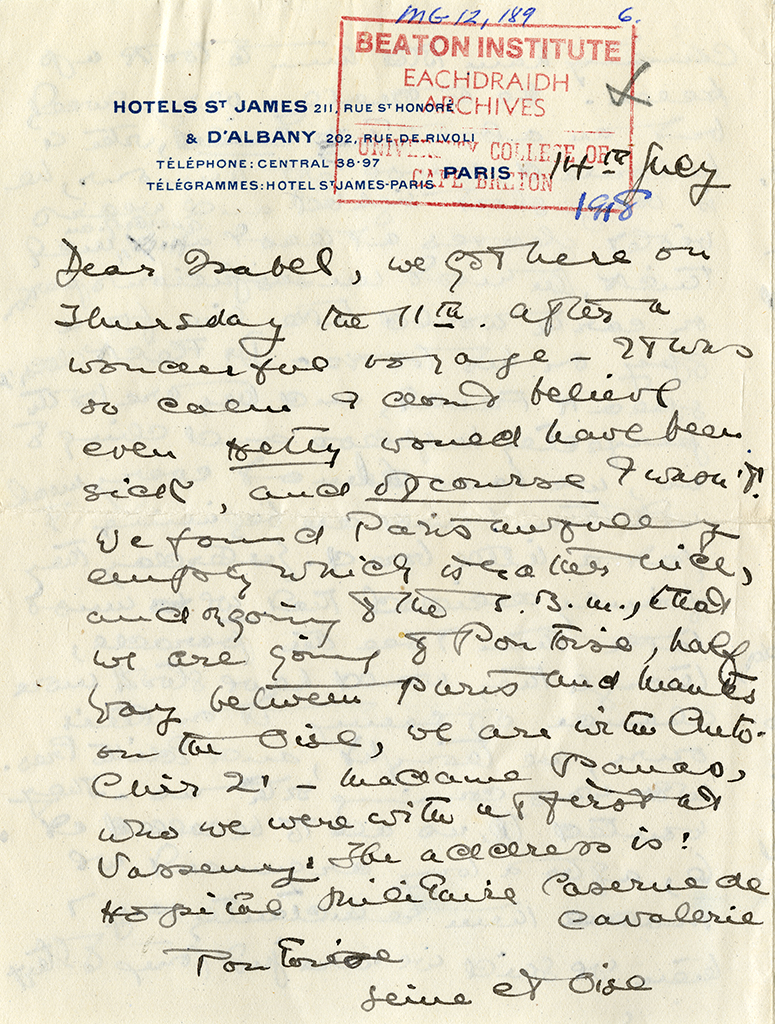 MG 12, 189 6.
BEATON INSTITUTE
EACHDRAIDH
ARCHIVES
UNIVERSITY COLLEGE OF
CAPE BRETON
HOTELS ST JAMES 211, RUE ST HONORÉ
& D'ALBANY 202, RUE DE RIVOLI
TÉLÉPHONE: CENTRAL 38-97
TÉLÉGRAMMES: HOTEL ST JAMES-PARIS
PARIS 14th July
1918
Dear Isabel, we got here on
Thursday the 11th. after a
wonderful voyage – It was
so calm I don't believe
even Hetty would have been
sick, and of course I wasn't!
We found Paris awfully
empty which is rather nice,
and going to the S. B. M., that
we are going to Pontoise, half
way between Paris and Mantes
on the Oise, we are with Auto-
Chir 21 – Madame Panas,
who we were with at first at
Vasseny. The address is:
Hospital Militaire Caserne de
Cavalerie
Pontoise
Seine et Oise